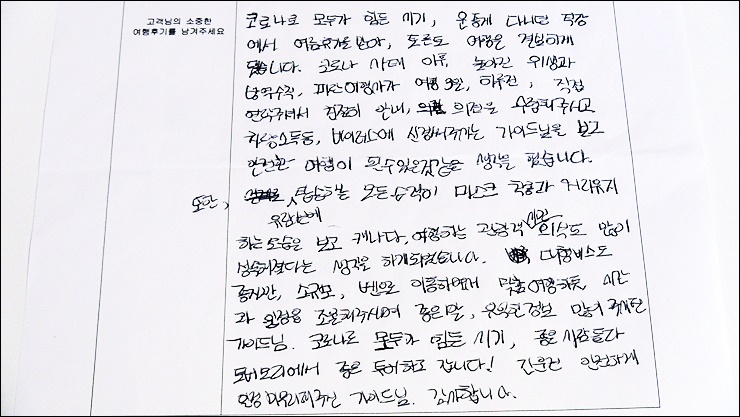 고객님의 소중한
여행후기를 남겨주세요
코로나로 모두가 힘든 시기, 운좋게 다니던 직장
에서 여름휴가를 받아, 토론토 여행을 결심하게
됐습니다. 코로나 사태 이후, 높아진 위생과
방역수칙, 파란여행사가 여행 3일, 하루전, 직접
연락주셔서 친절히 안내, 의견을 수렴해주시고
차량소독등, 바이러스에 신경써주시는 가이드님을 보고
안전한 여행이 될수있을것같은 생각을 했습니다.
또한, 유람선에 탑승하는 모든승객이 마스크 착용과 거리유지
하는모습을 보고 캐나다, 여행하는 관광객 시민 의식도 많이
성숙해졌다는 생각을 하게되었습니다. 대형버스도
좋지만, 소규모, 밴으로 이동하면서 맞춤여행하듯, 시간
과 일정을 조절해주시며 좋은말, 유익한정보 많이
가이드님. 코로나로 모두가 힘든 시기, 좋은 사람들과
토론토에서 좋은 투어하고 갑니다! 안전하게
가이드님. 감사합니다.